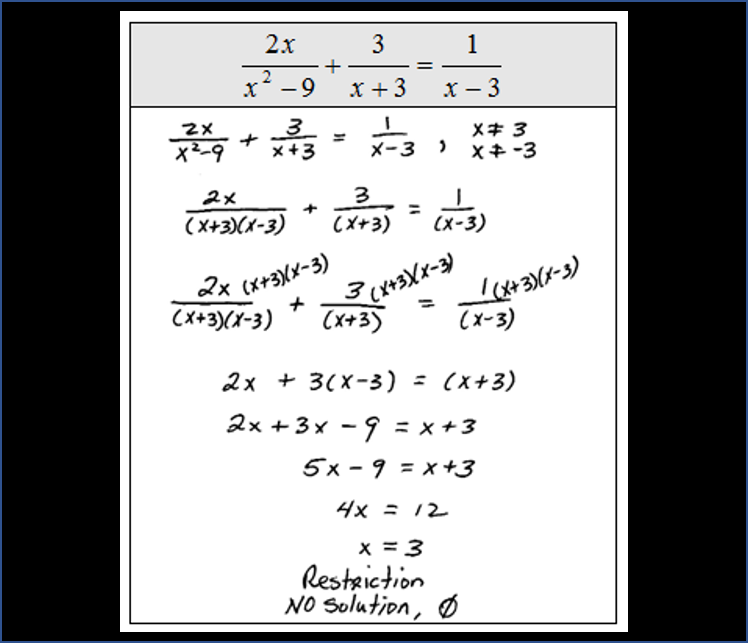 2x/(x² − 9) + 3/(x + 3) = 1/(x − 3)
2x/(x²−9) + 3/(x+3) = 1/(x−3) , x ≠ 3
x ≠ −3
2x/((x+3)(x−3)) + 3/((x+3)) = 1/((x−3))
2x (x+3)(x−3)/((x+3)(x−3)) + 3 (x+3)(x−3)/((x+3)) = 1 (x+3)(x−3)/((x−3))
2x + 3(x−3) = (x+3)
2x + 3x − 9 = x + 3
5x − 9 = x + 3
4x = 12
x = 3
Restriction
NO Solution, Ø